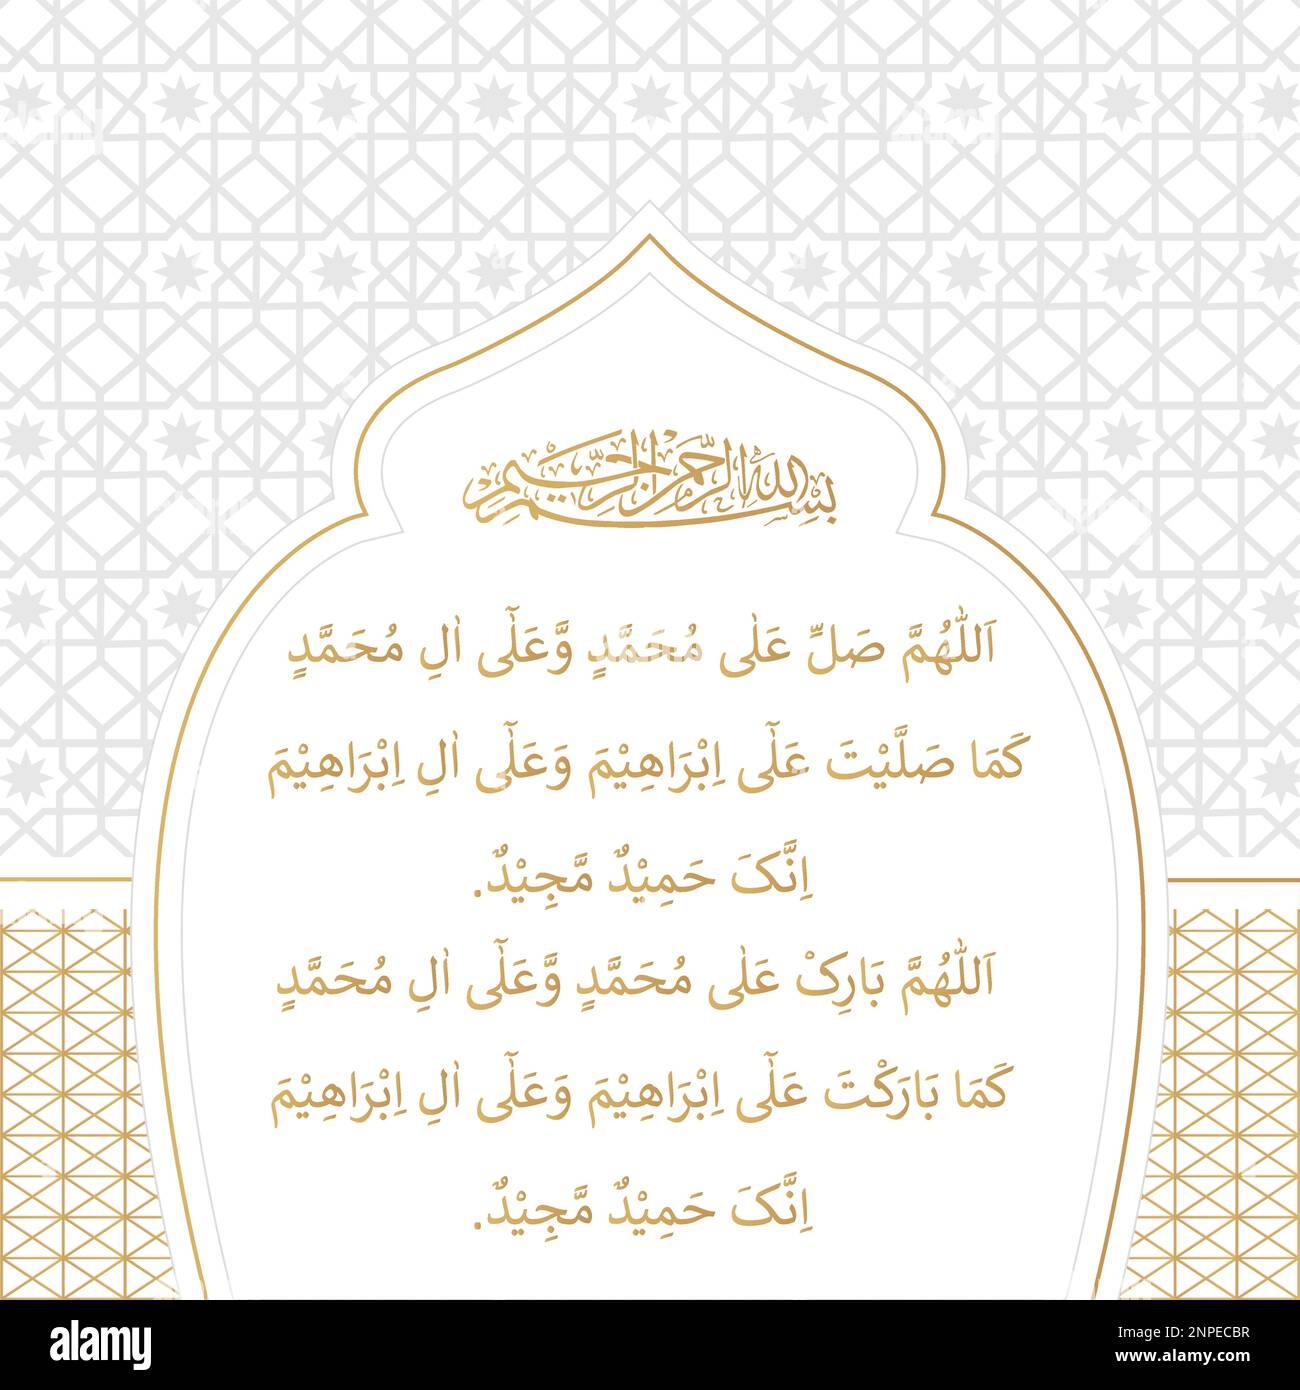 بِسْمِ اللهِ الرَّحْمٰنِ الرَّحِيْمِ
اَللّٰهُمَّ صَلِّ عَلٰى مُحَمَّدٍ وَّعَلٰٓى اٰلِ مُحَمَّدٍ
كَمَا صَلَّيْتَ عَلٰٓى اِبْرَاهِيْمَ وَعَلٰٓى اٰلِ اِبْرَاهِيْمَ
اِنَّکَ حَمِيْدٌ مَّجِيْدٌ.
اَللّٰهُمَّ بَارِکْ عَلٰى مُحَمَّدٍ وَّعَلٰٓى اٰلِ مُحَمَّدٍ
كَمَا بَارَكْتَ عَلٰٓى اِبْرَاهِيْمَ وَعَلٰٓى اٰلِ اِبْرَاهِيْمَ
اِنَّکَ حَمِيْدٌ مَّجِيْدٌ.
alamy
Image ID: 2NPECBR
www.alamy.com